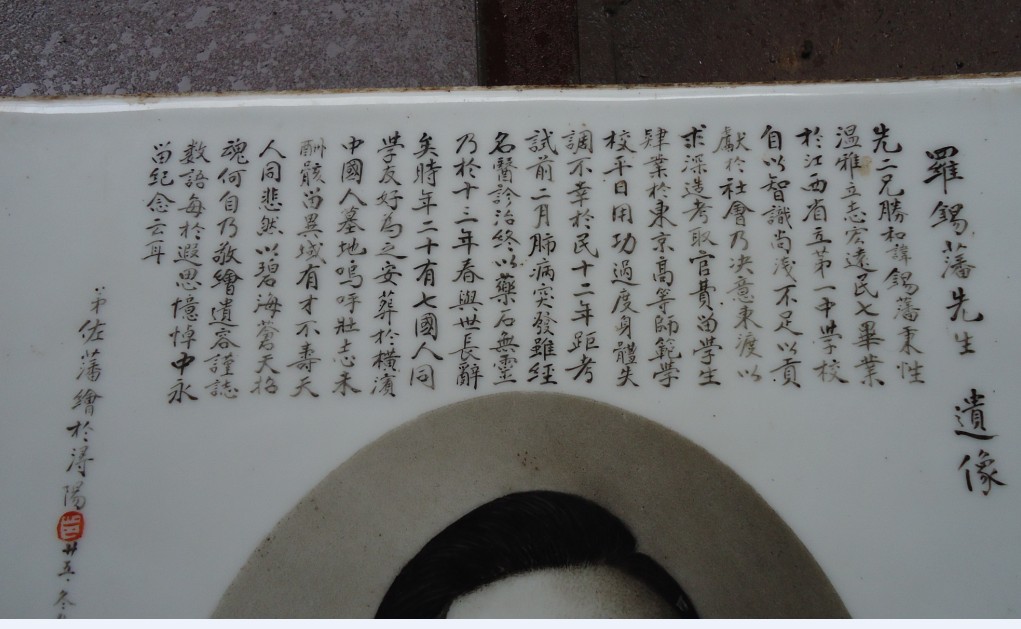 羅錫藩先生 遺像
先二兄勝和諱錫藩秉性
溫雅立志宏遠民七畢業
於江西省立第一中學校
自以智識尚淺不足以貢
獻於社會乃决意東渡以
求深造考取官費畄學生
肄業於東京高等師範學
校平日用功過度身體失
調不幸於民十二年距考
試前二月肺病突發雖經
名醫診治終以藥石無靈
乃於十三年春與世長辭
矣時年二十有七國人同
學友好為之安葬於橫濱
中國人墓地嗚呼壯志未
酬骸畄異域有才不壽天
人同悲然以碧海蒼天招
魂何自乃敬繪遺容謹誌
數語每於遐思憶悼中永
畄紀念云耳
弟佐藩繪於潯陽 廿五·冬